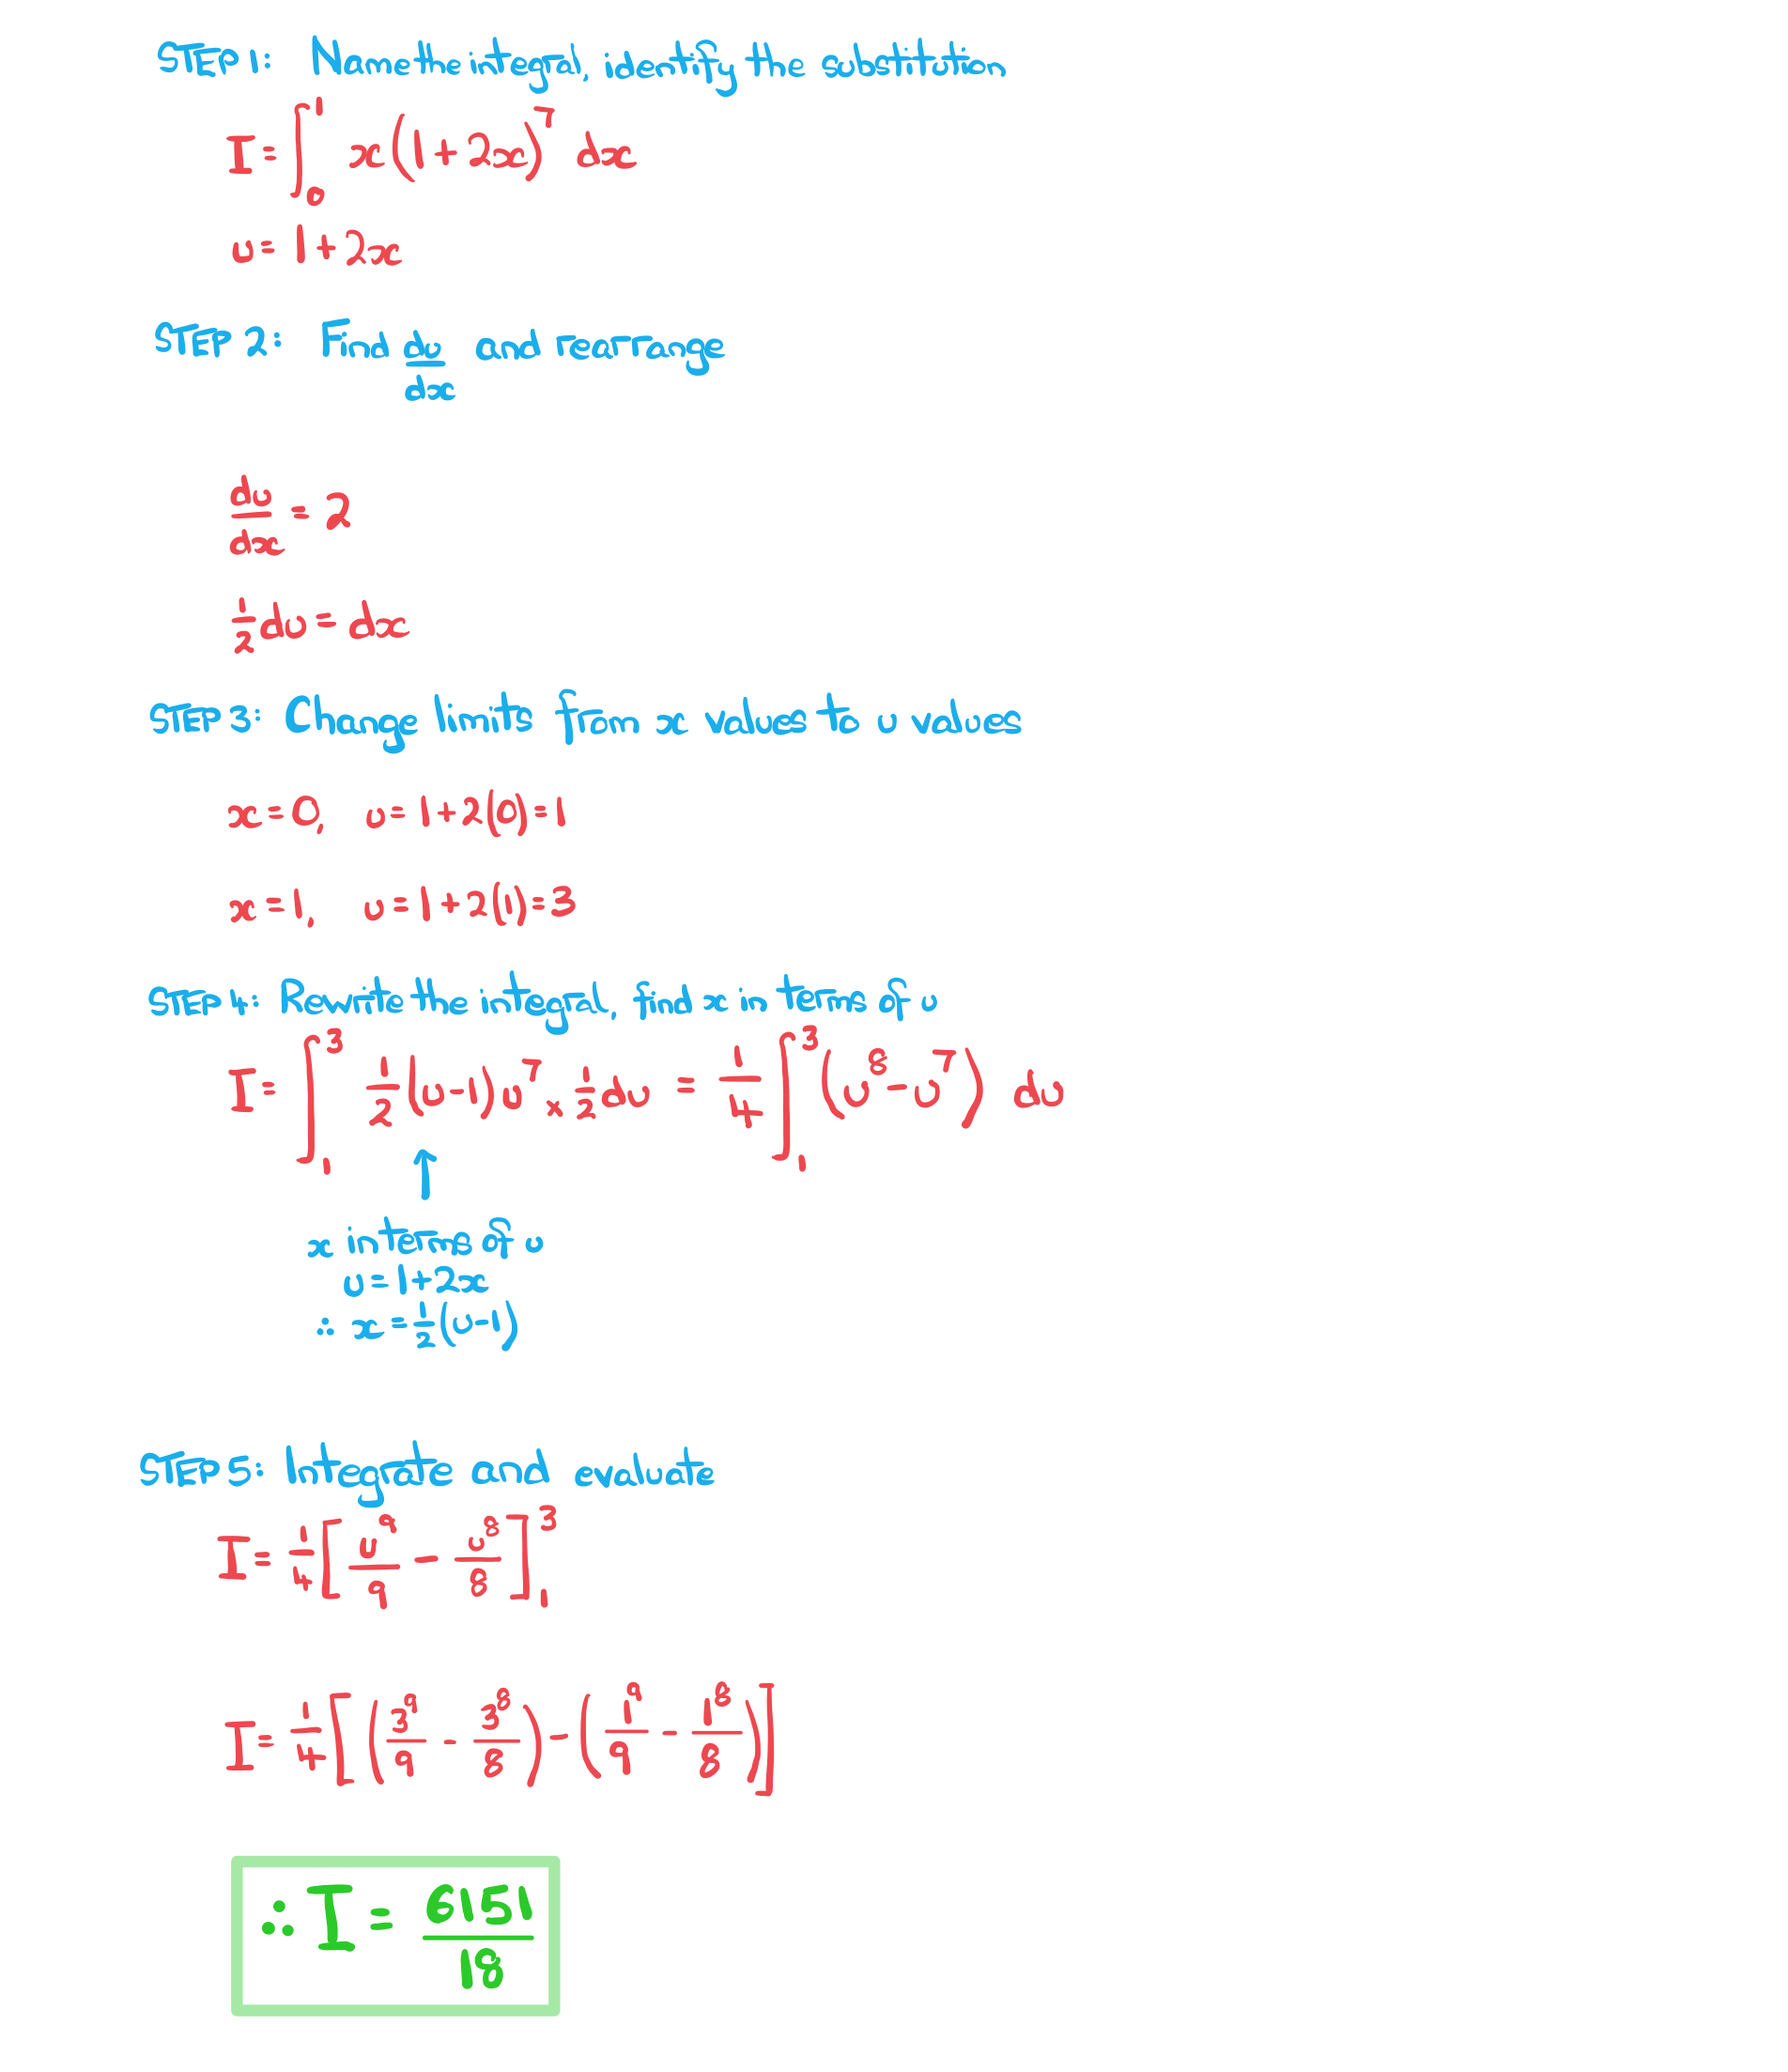 STEP 1: Name the integral, identify the substitution
I = ∫₀¹ x(1+2x)⁷ dx
u = 1+2x
STEP 2: Find du/dx and rearrange
du/dx = 2
1/2 du = dx
STEP 3: Change limits from x values to u values
x = 0, u = 1+2(0) = 1
x = 1, u = 1+2(1) = 3
STEP 4: Rewrite the integral, find x in terms of u
I = ∫₁³ 1/2 (u-1) u⁷ × 1/2 du = 1/4 ∫₁³ (u⁸ - u⁷) du
↑
x in terms of u
u = 1+2x
∴ x = 1/2 (u-1)
STEP 5: Integrate and evaluate
I = 1/4 [u⁹/9 - u⁸/8]₁³
I = 1/4 [(3⁹/9 - 3⁸/8) - (1⁹/9 - 1⁸/8)]
∴ I = 6151/18